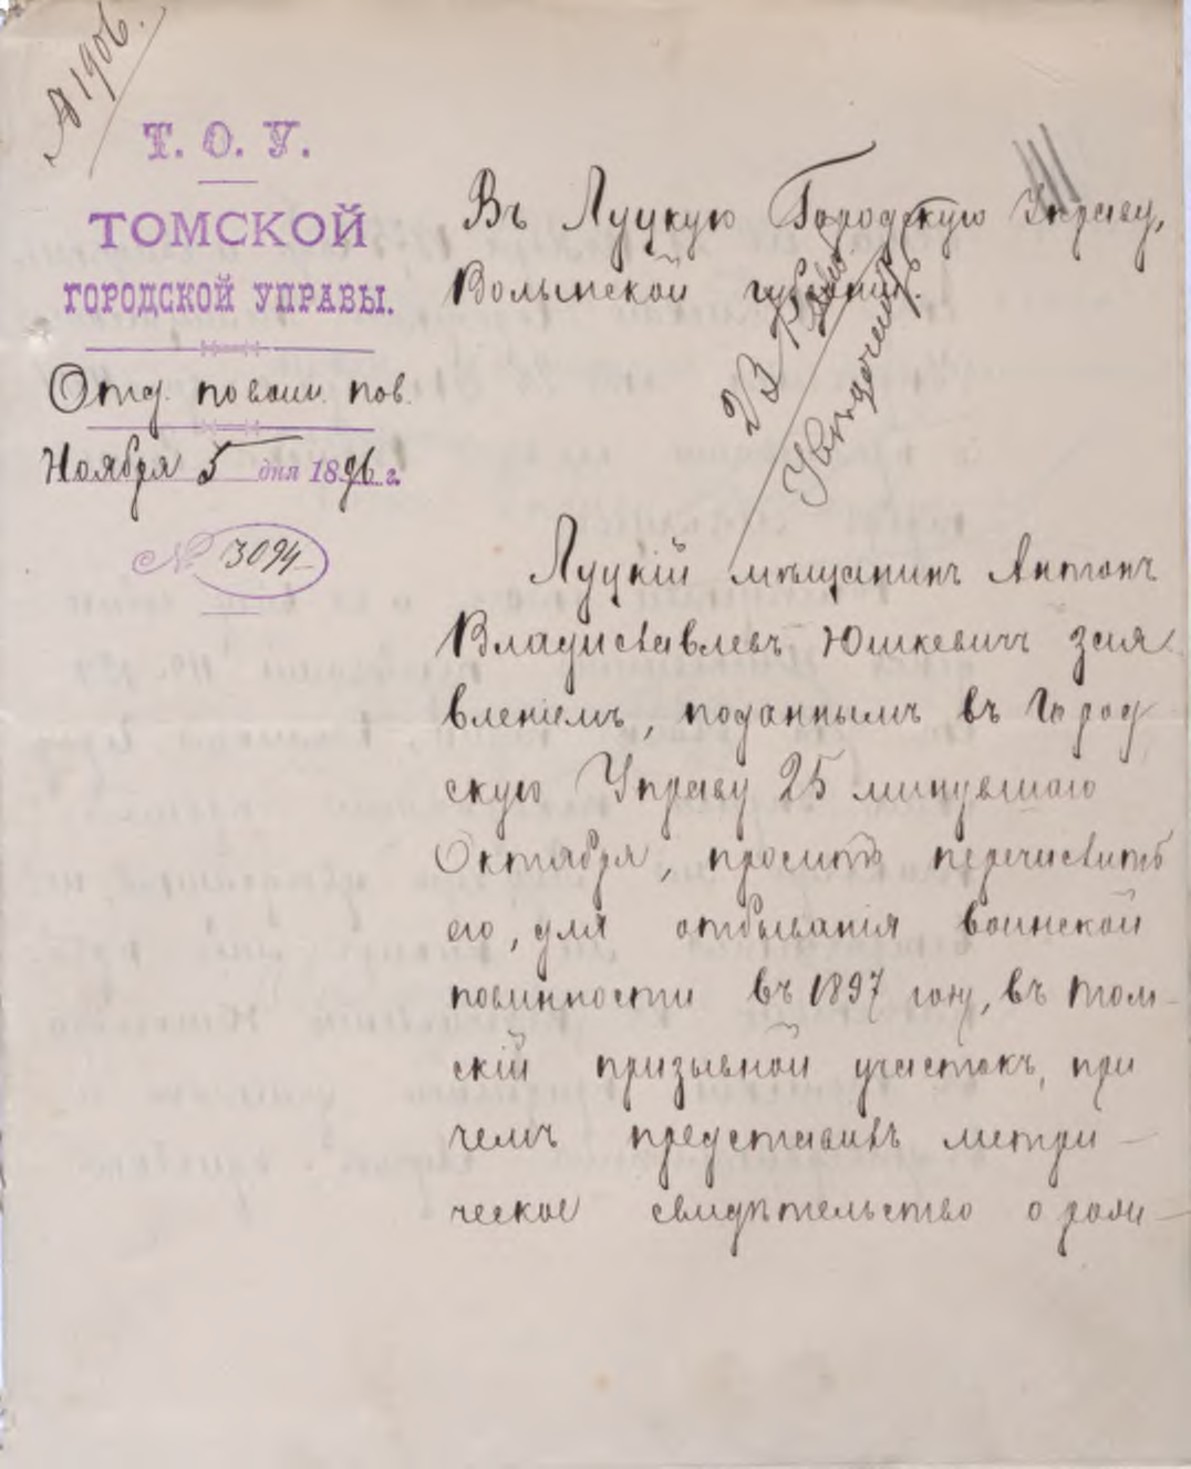 № 1906.
Т. О. У.
ТОМСКОЙ
ГОРОДСКОЙ УПРАВЫ.
Отд. по воин. пов.
Ноября 5 дня 1896 г.
№ 3094
Въ Луцкую Городскую Управу,
Волынской губерніи.
Луцкій мѣщанинъ Антонъ
Владиславлевъ Юшкевичъ зая-
вленіемъ, поданнымъ въ Город
скую Управу 25 минувшаго
Октября, проситъ перечислить
его, для отбыванія воинской
повинности въ 1897 году, въ Том-
скій призывной участокъ, при
чемъ представивъ метри-
ческое свидѣтельство о роди-